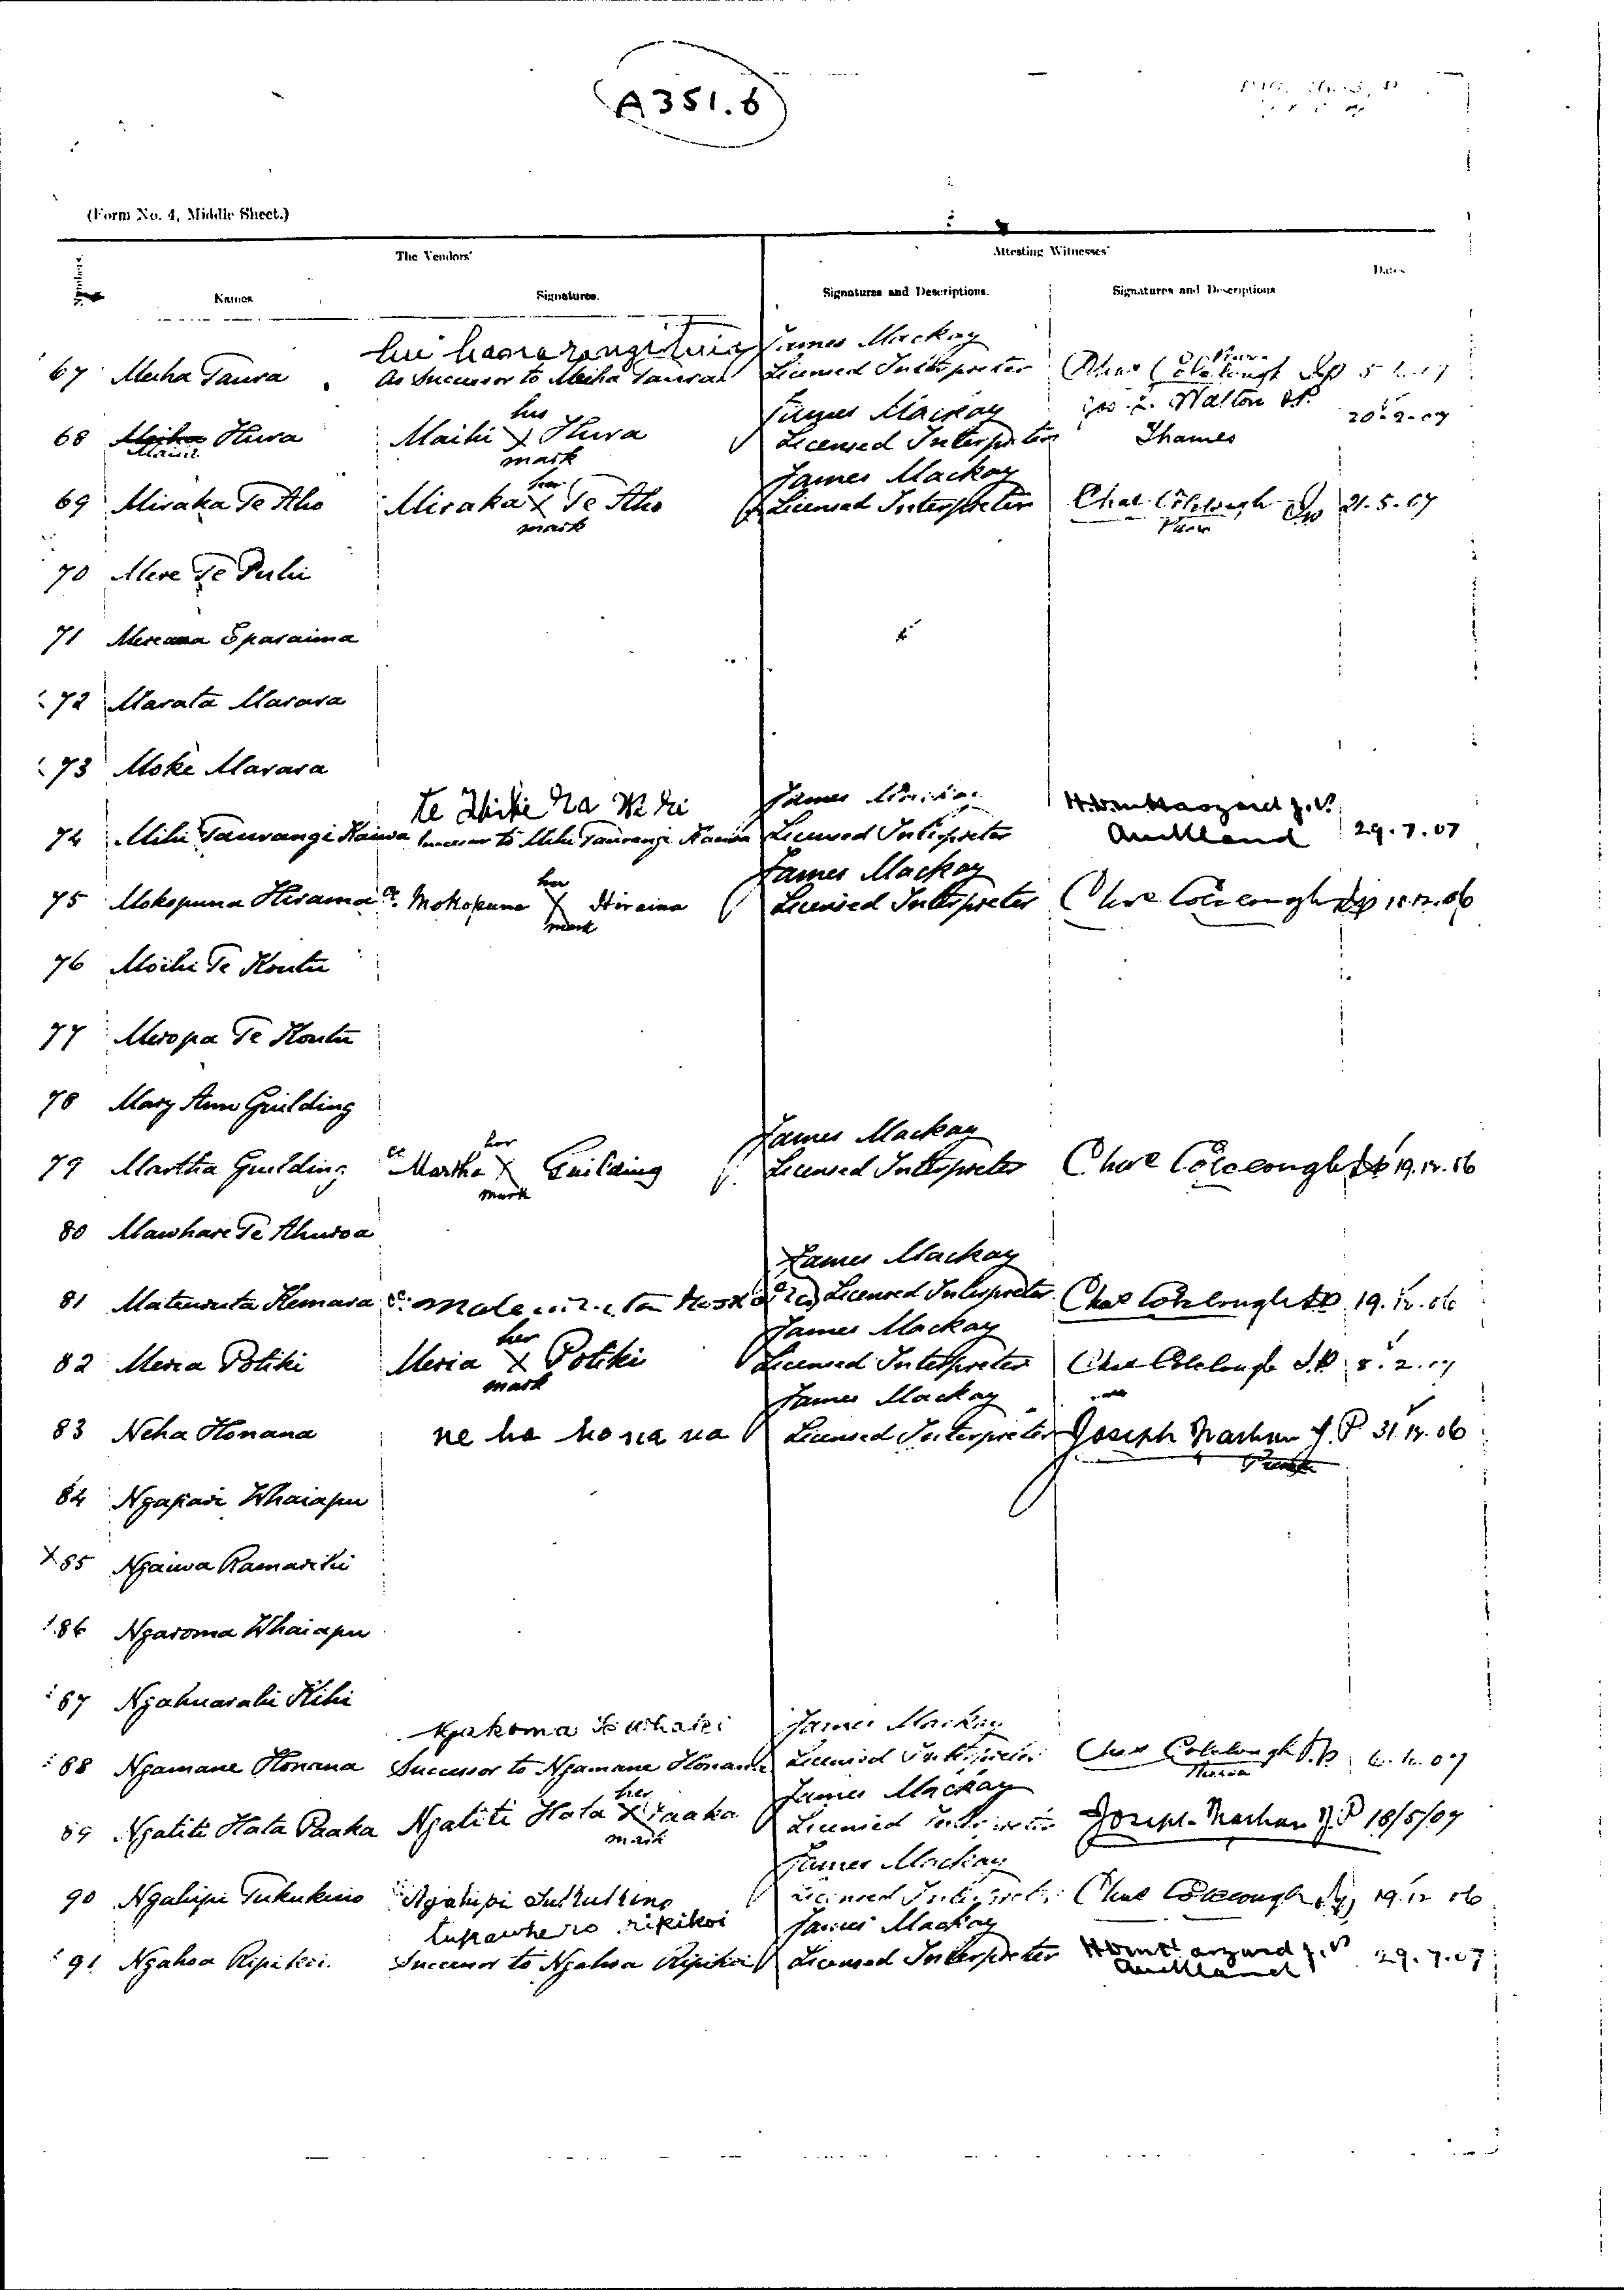 A351.6
(Form No. 4, Middle Sheet.)
The Vendors'
Attesting Witnesses'
Names
Signatures.
Signatures and Descriptions.
Signatures and Descriptions
Dates
James Mackay
67 Meha Taura As Successor to Meiha Taura Licensed Interpreter
his James Mackay Walton J.P. 20.2.07
68 Hura Maihi X Hura Licensed Interpreter Thames
mark
her James Mackay
69 Miraka Te Aho Miraka X Te Aho Licensed Interpreter Chas Colclough 21.5.07
mark
70 Mere Te Puhi
71 Mereana Eparaima
72 Marata Marara
73 Moke Marara
James
74 Mihi Taurangi Successor to Mihi Taurangi Licensed Interpreter Auckland 29.7.07
her James Mackay
75 Mokopuna Hirama Mokopuna X Hiraina Licensed Interpreter Chas Colclough
mark
76 Moihi Te Koutu
77 Meropa Te Koutu
78 Mary Ann Guilding
her James Mackay
79 Martha Guilding Martha X Guilding Licensed Interpreter Chas Colclough 19.12.06
mark
80 Mawhare Te Ahuroa
James Mackay
81 Matenuita Kemara Licensed Interpreter Chas Colclough JP 19.12.06
her James Mackay
82 Meria Potiki Meria X Potiki Licensed Interpreter Chas Colclough J.P. 8.2.07
mark
James Mackay
83 Neha Honana ne ha ho na na Licensed Interpreter Joseph Nathan J.P 31.12.06
84 Ngapari Whaiapu
X 85 Ngaiwa Ramariki
86 Ngaroma Whaiapu
87 Ngahuarahi Kihi
Ngakoma James Mackay
88 Ngamane Honana Successor to Ngamane Honana Licensed Interpreter Chas Colclough J.P.
her James Mackay
89 Ngatiti Hata Paaka Ngatiti Hata X Paaka Licensed Interpreter Joseph Nathan J.P 18/5/07
mark
James Mackay
90 Ngahipi Tukukino Ngahipi Tukukino Licensed Interpreter Chas Colclough 19.12.06
ripikoi James Mackay
91 Ngahoa Ripikoi Successor to Ngahoa Ripikoi Licensed Interpreter 29.7.07
Auckland